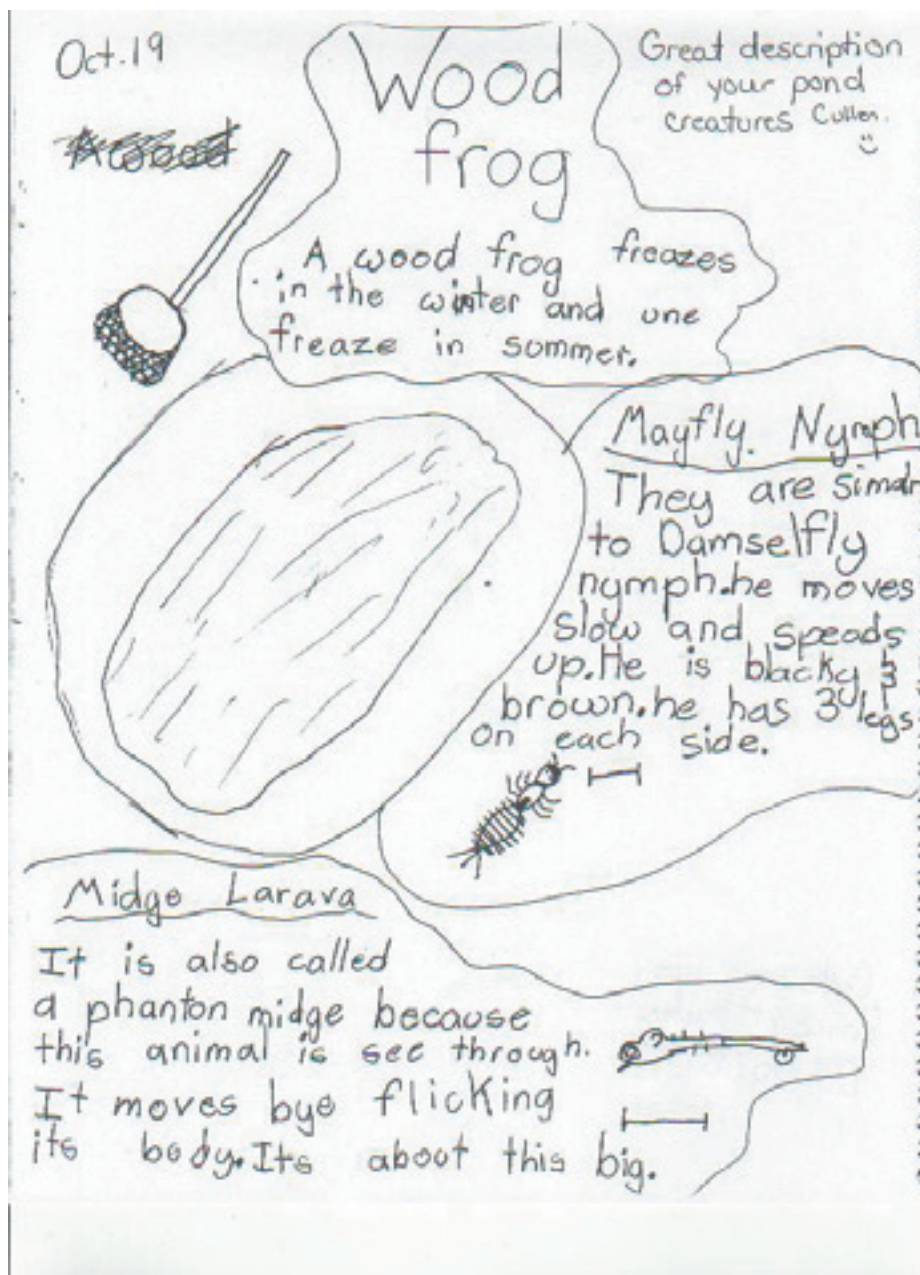 Oct.19
Great description
of your pond
creatures Cullen.
Wood
frog
A wood frog freazes
in the winter and une
freaze in sommer.
Mayfly. Nymph
They are simalr
to Damselfly
nymph.he moves
slow and speads
up.He is blacky
brown.he has 3 legs
on each side.
Midge Larava
It is also called
a phanton midge because
this animal is see through.
It moves bye flicking
its body.Its about this big.